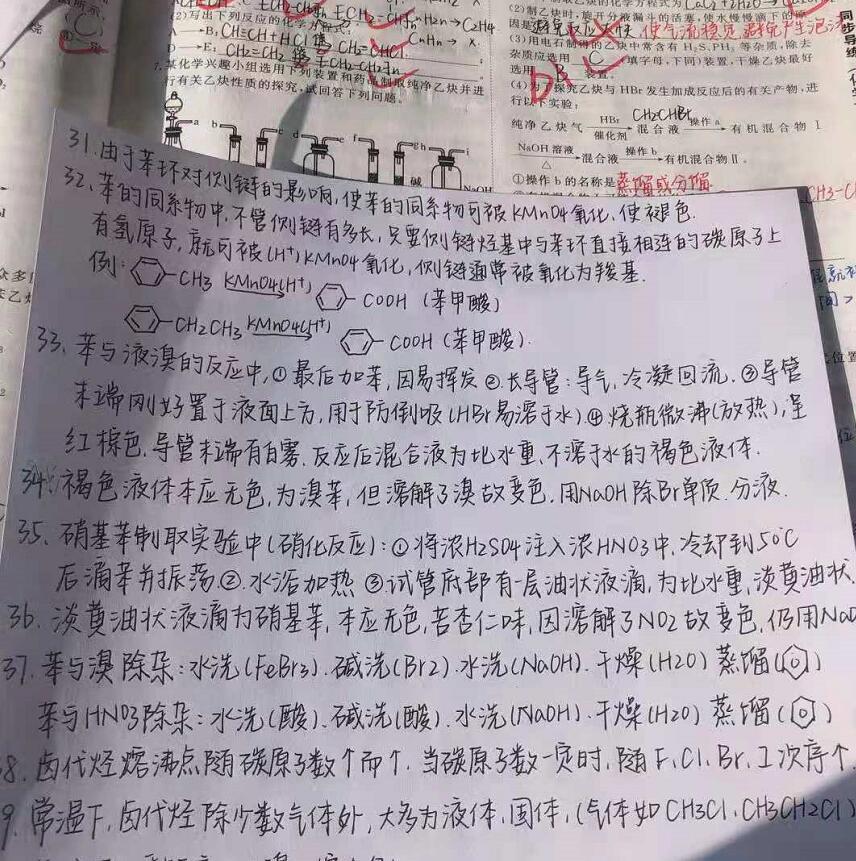 (2)写出下列反应的化学方程式
A→B:CH≡CH+HCl
CH2=CHCl
D→E:CH2=CH2
7.某化学兴趣小组选用下列装置和药品制取纯净乙炔并进
行有关乙炔性质的探究,试回答下列问题。
(2)制乙炔时,旋开分液漏斗的活塞,使水慢慢滴下的
(3)用电石制得的乙炔中常含有H2S、PH3等杂质,除去
杂质应选用 C (填字母,下同)装置,干燥乙炔最好
选用 装置。
(4)为了探究乙炔与HBr发生加成反应后的有关产物,进
行以下实验:
纯净乙炔气 HBr 催化剂 混合液 操作a 有机混合物Ⅰ
NaOH溶液 △ 混合液 操作b 有机混合物Ⅱ。
①操作b的名称是蒸馏或分馏
31.由于苯环对侧链的影响,使苯的同系物可被KMnO4氧化,使褪色.
32、苯的同系物中,不管侧链有多长,只要侧链烃基中与苯环直接相连的碳原子上
有氢原子,就可被(H+)KMnO4氧化,侧链通常被氧化为羧基.
例: -CH3 KMnO4(H+) -COOH (苯甲酸)
-CH2CH3 KMnO4(H+) -COOH (苯甲酸).
33、苯与液溴的反应中,①最后加苯,因易挥发②.长导管:导气,冷凝回流.③导管
末端刚好置于液面上方,用于防倒吸(HBr易溶于水).④烧瓶微沸(放热),呈
红棕色,导管末端有白雾.反应后混合液为比水重,不溶于水的褐色液体.
34、褐色液体本应无色,为溴苯,但溶解了溴故变色.用NaOH除Br单质.分液.
35、硝基苯制取实验中(硝化反应):①将浓H2SO4注入浓HNO3中,冷却到50℃
后滴苯并振荡.②.水浴加热 ③试管底部有一层油状液滴,为比水重,淡黄油状.
36.淡黄油状液滴为硝基苯,本应无色,苦杏仁味,因溶解了NO2故变色,仍用NaO
37.苯与溴除杂:水洗(FeBr3).碱洗(Br2).水洗(NaOH).干燥(H2O)蒸馏( )
苯与HNO3除杂:水洗(酸).碱洗(酸).水洗(NaOH).干燥(H2O)蒸馏( )
38.卤代烃熔沸点随碳原子数↑而↑.当碳原子数一定时,随F、Cl、Br、I次序↑.
9.常温下,卤代烃除少数气体外,大多为液体、固体.(气体如CH3Cl、CH3CH2Cl)